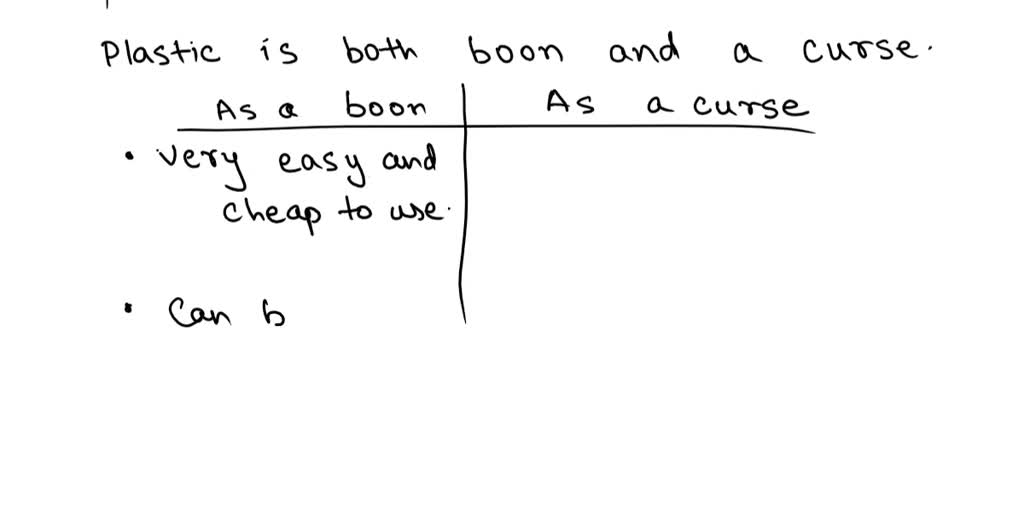 Plastic is both boon and a curse.
As a boon As a curse
• very easy and
cheap to use.
• Can b